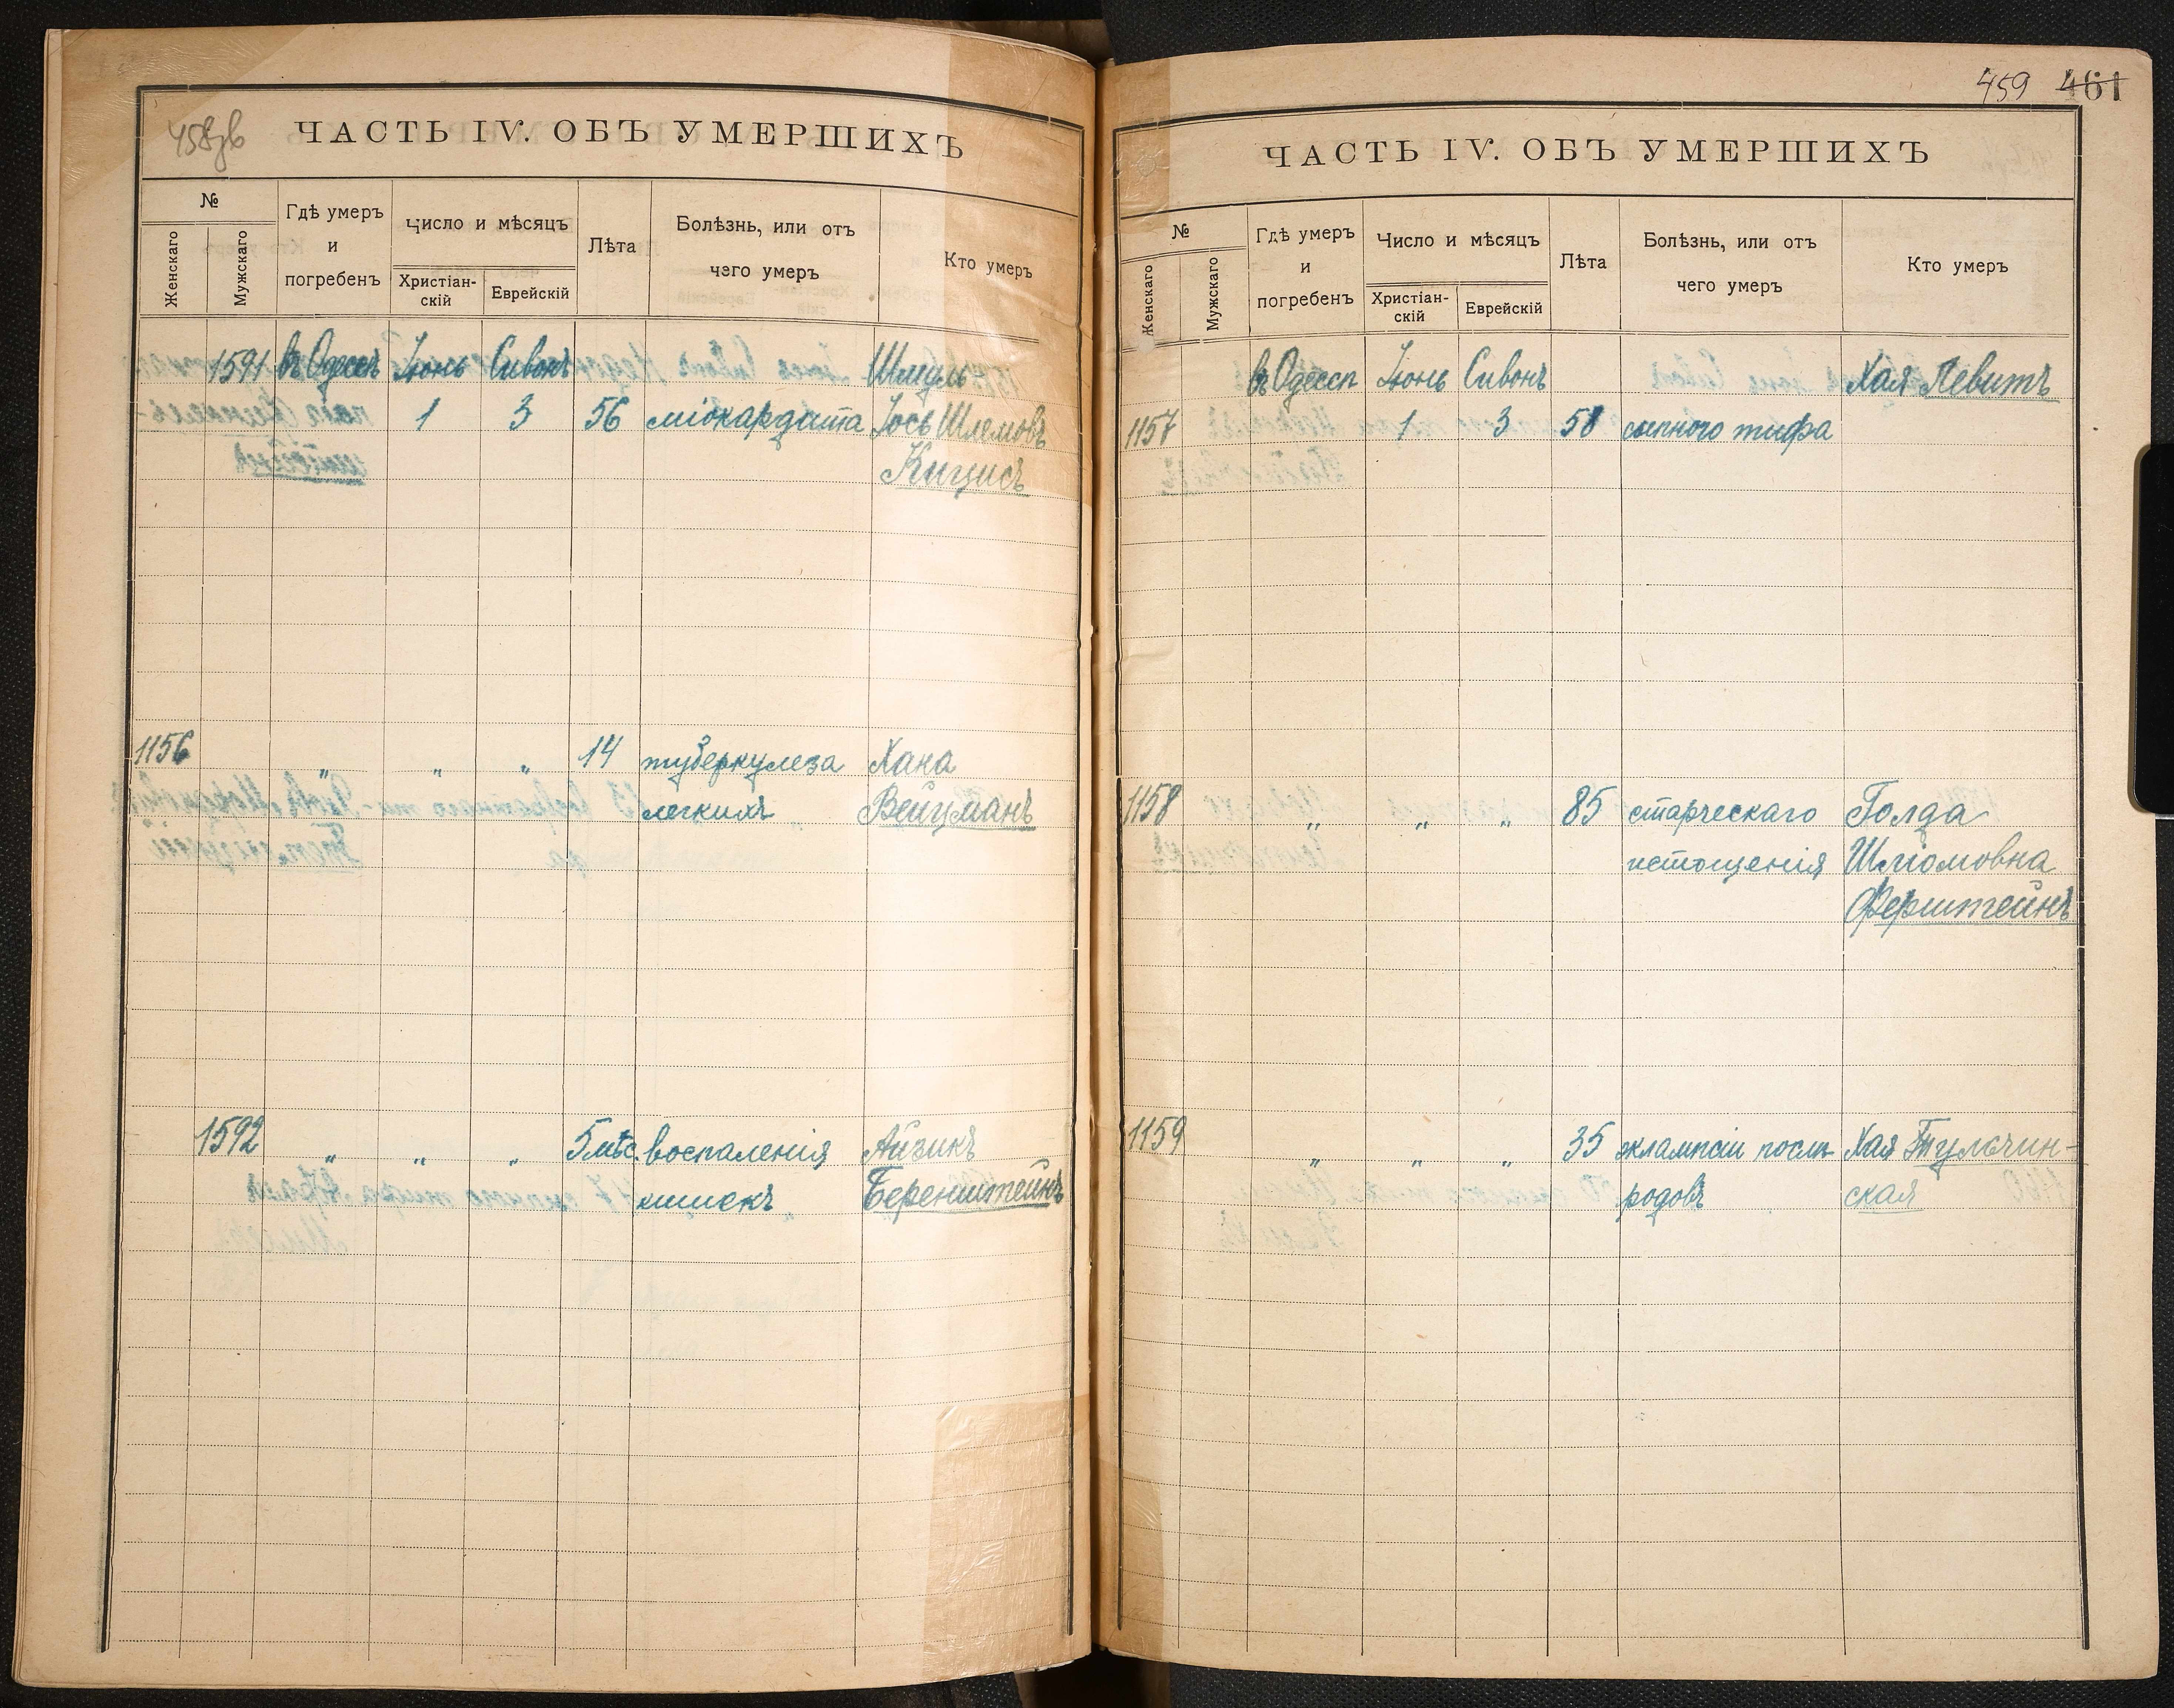 458зв
ЧАСТЬ IV. ОБЪ УМЕРШИХЪ
№
Женскаго
Мужскаго
Гдѣ умеръ
и
погребенъ
Число и мѣсяцъ
Христіан-
скій
Еврейскій
Лѣта
Болѣзнь, или отъ
чего умеръ
Кто умеръ
1591 въ Одессѣ Іюнь Сивонъ Шмуль
1 3 56 міокардита Іось Шлемовъ
Кицисъ
1156 " " " 14 туберкулеза Хана
легкихъ Вейцманъ
1592 " " " 5 мѣс. воспаленія Айзикъ
кишекъ Беренштейнъ
459 461
ЧАСТЬ IV. ОБЪ УМЕРШИХЪ
№
Женскаго
Мужскаго
Гдѣ умеръ
и
погребенъ
Число и мѣсяцъ
Христіан-
скій
Еврейскій
Лѣта
Болѣзнь, или отъ
чего умеръ
Кто умеръ
въ Одессѣ Іюнь Сивонъ Хая Левитъ
1157 1 3 58 сыпного тифа
1158 " " " 85 старческаго Голда
истощенія Шліомовна
Ферштейнъ
1159 " " " 35 эклампсіи послѣ Хая Тульчин-
родовъ ская